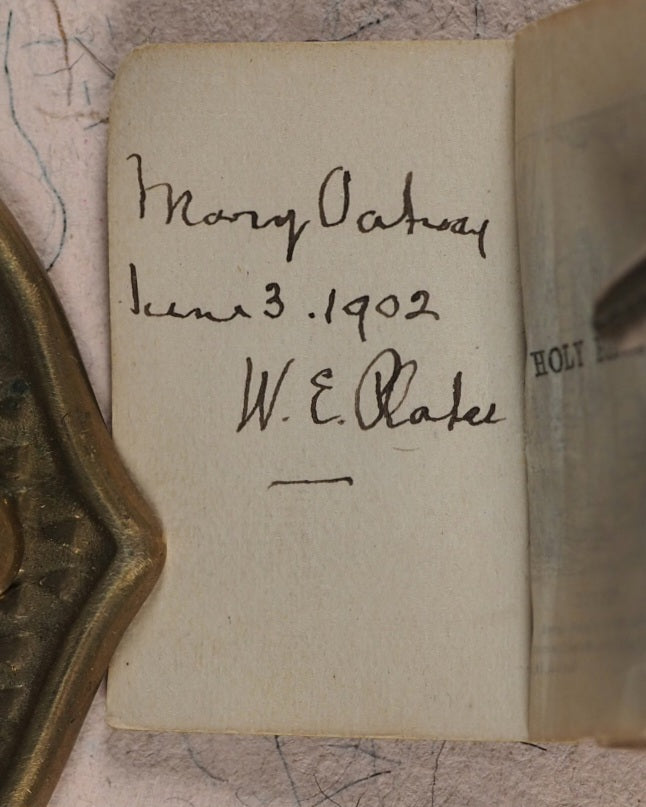 Mary Oatway
June 3. 1902
W. E. Plater
HOLY